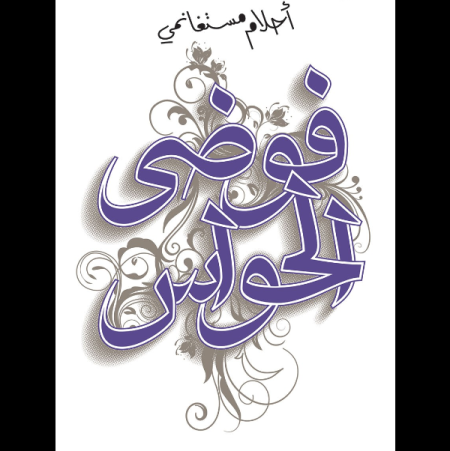 أحلام مستغانمي
فوضى
الحواس